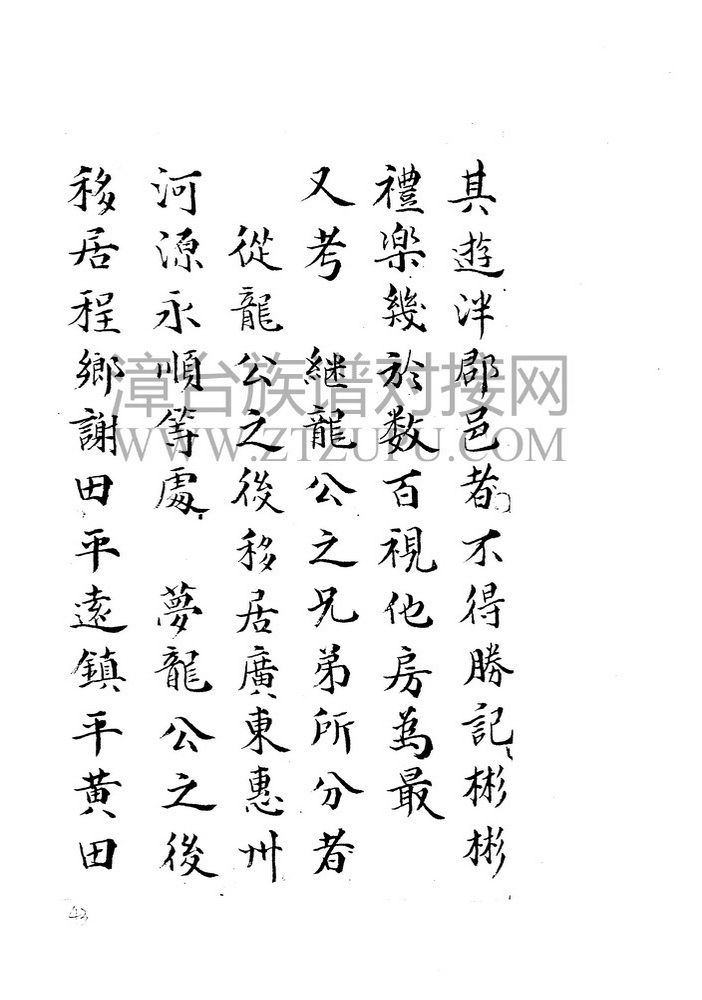 其遊泮郡邑者不得勝記、彬彬
禮樂幾於数百視他房為最
又考 継龍公之兄弟所分者
從龍公之後移居廣東惠州
河源永順等處、 夢龍公之後
移居程鄉謝田平遠鎮平黄田
漳台族谱对接网
WWW.ZTZUPU.COM
43